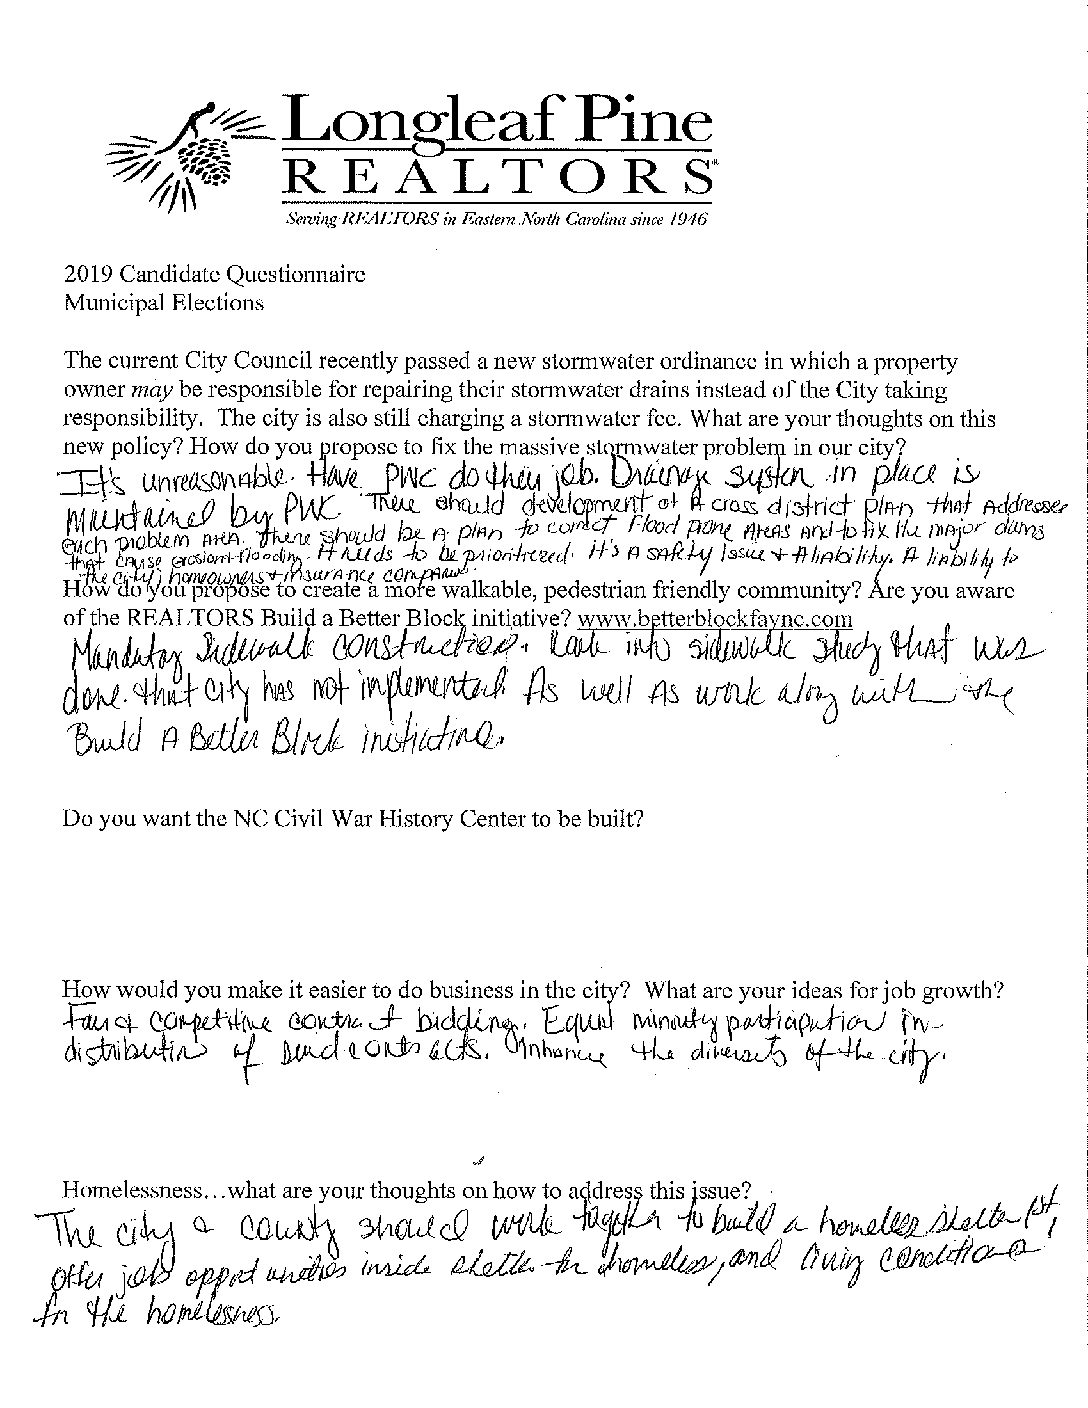 Longleaf Pine
REALTORS
Serving REALTORS in Eastern North Carolina since 1946
2019 Candidate Questionnaire
Municipal Elections
The current City Council recently passed a new stormwater ordinance in which a property
owner may be responsible for repairing their stormwater drains instead of the City taking
responsibility. The city is also still charging a stormwater fee. What are your thoughts on this
new policy? How do you propose to fix the massive stormwater problem in our city?
It's unreasonable. Have PWC do their job. Drainage system in place is
maintained by PWC. There should development of A cross district plan that Addresses
each problem area. There should be a plan to correct Flood prone Areas and to fix the major dams
that cause erosion + flooding. It needs to be prioritized. It's A safety Issue + A liability. A liability to
the city, homeowners + insurance company.
How do you propose to create a more walkable, pedestrian friendly community? Are you aware
of the REALTORS Build a Better Block initiative? www.betterblockfaync.com
Mandatory Sidewalk construction. Look into sidewalk study that was
done. that city has not implemented As well As work along with the
Build A Better Block initiative.
Do you want the NC Civil War History Center to be built?
How would you make it easier to do business in the city? What are your ideas for job growth?
Fair & competitive contract bidding. Equal minority participation in
distribution of contracts. Enhance the diversity of the city.
Homelessness...what are your thoughts on how to address this issue?
The city & county should work together to build a homeless shelter 1st,
offer job opportunities inside shelter for homeless, and living conditions
for the homelessness.